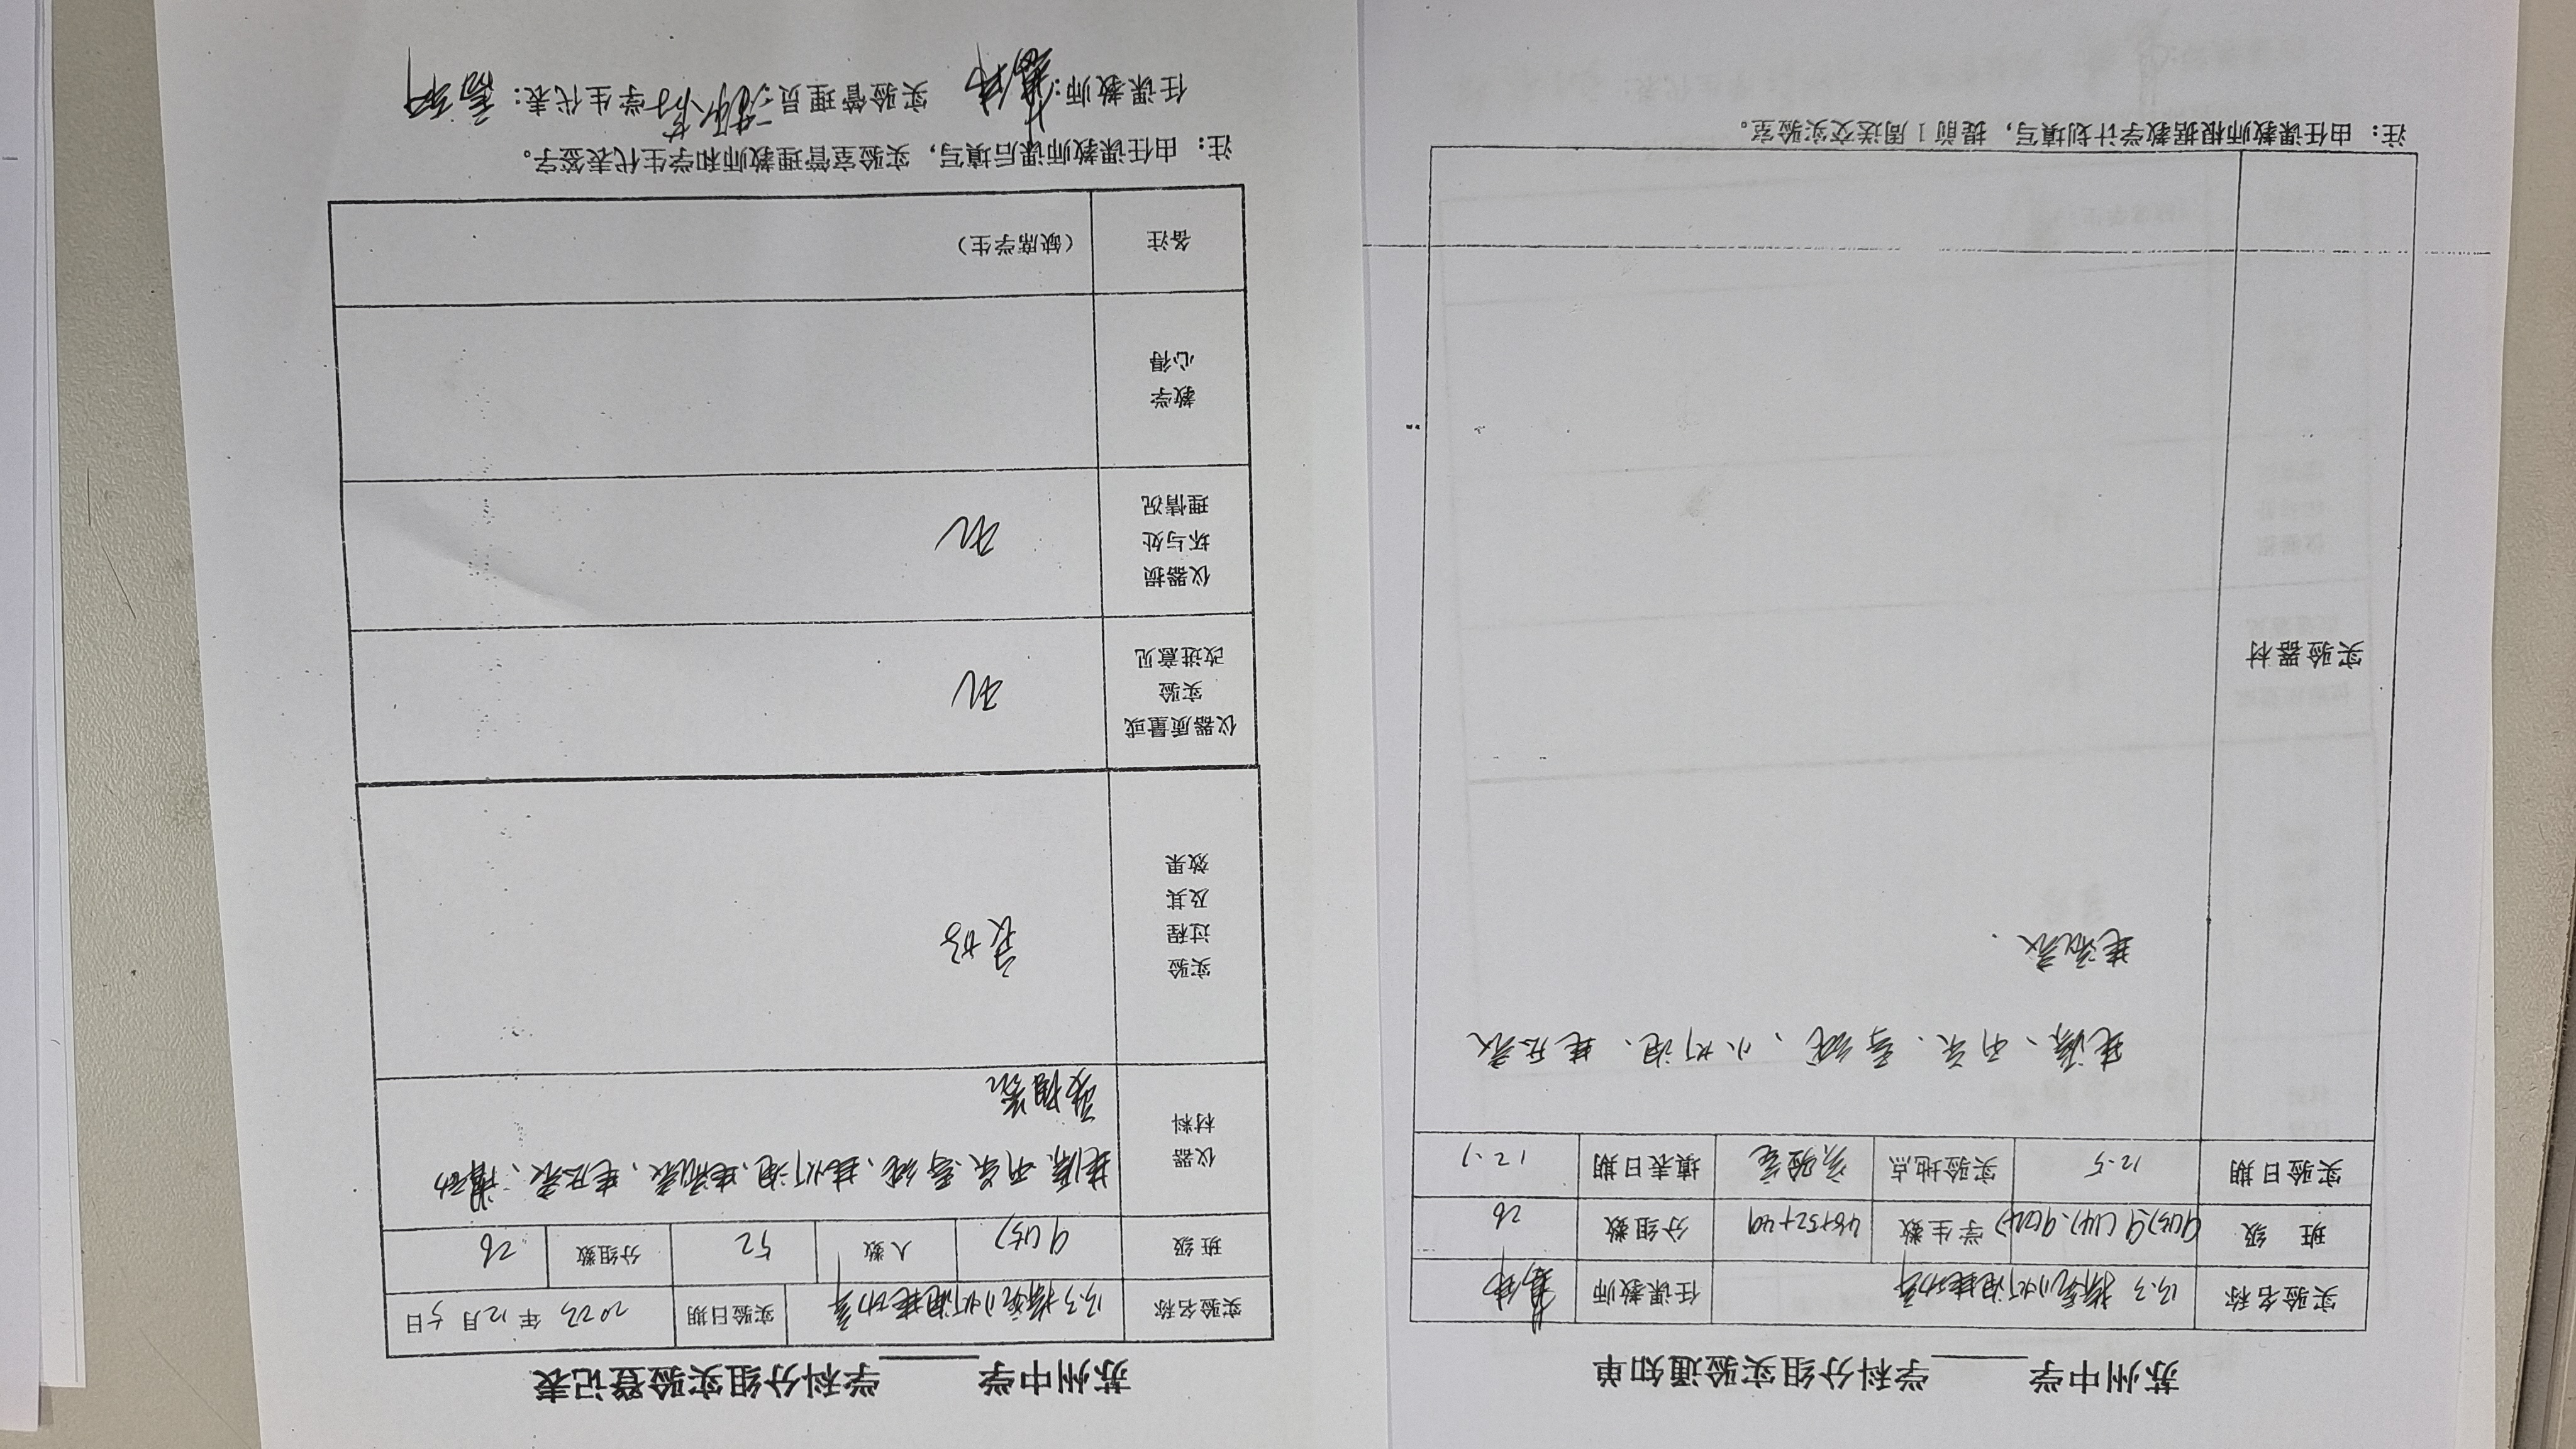 苏州中学____学科分组实验通知单
实验名称 13.3 探究小灯泡电功率 任课教师
班 级 9(15).9(14).9(24) 学生数 48+52+49 分组数 26
实验日期 12.5 实验地点 实验室 填表日期 12.1
实验器材 电源、开关、导线、小灯泡、电压表
电流表.
注：由任课教师根据教学计划填写，提前1周送交实验室。
苏州中学____学科分组实验登记表
实验名称 13.3探究小灯泡电功率 实验日期 2023年12月5日
班级 9(15) 人数 52 分组数 26
仪器
材料
电源、开关、导线、电灯泡、电流表、电压表、滑动
变阻器
实验
过程
及其
效果
良好
仪器质量或
实验
改进意见
无
仪器损
坏与处
理情况
无
教学
心得
备注 （缺席学生）
注：由任课教师课后填写，实验室管理教师和学生代表签字。
任课教师： 实验管理员： 学生代表：